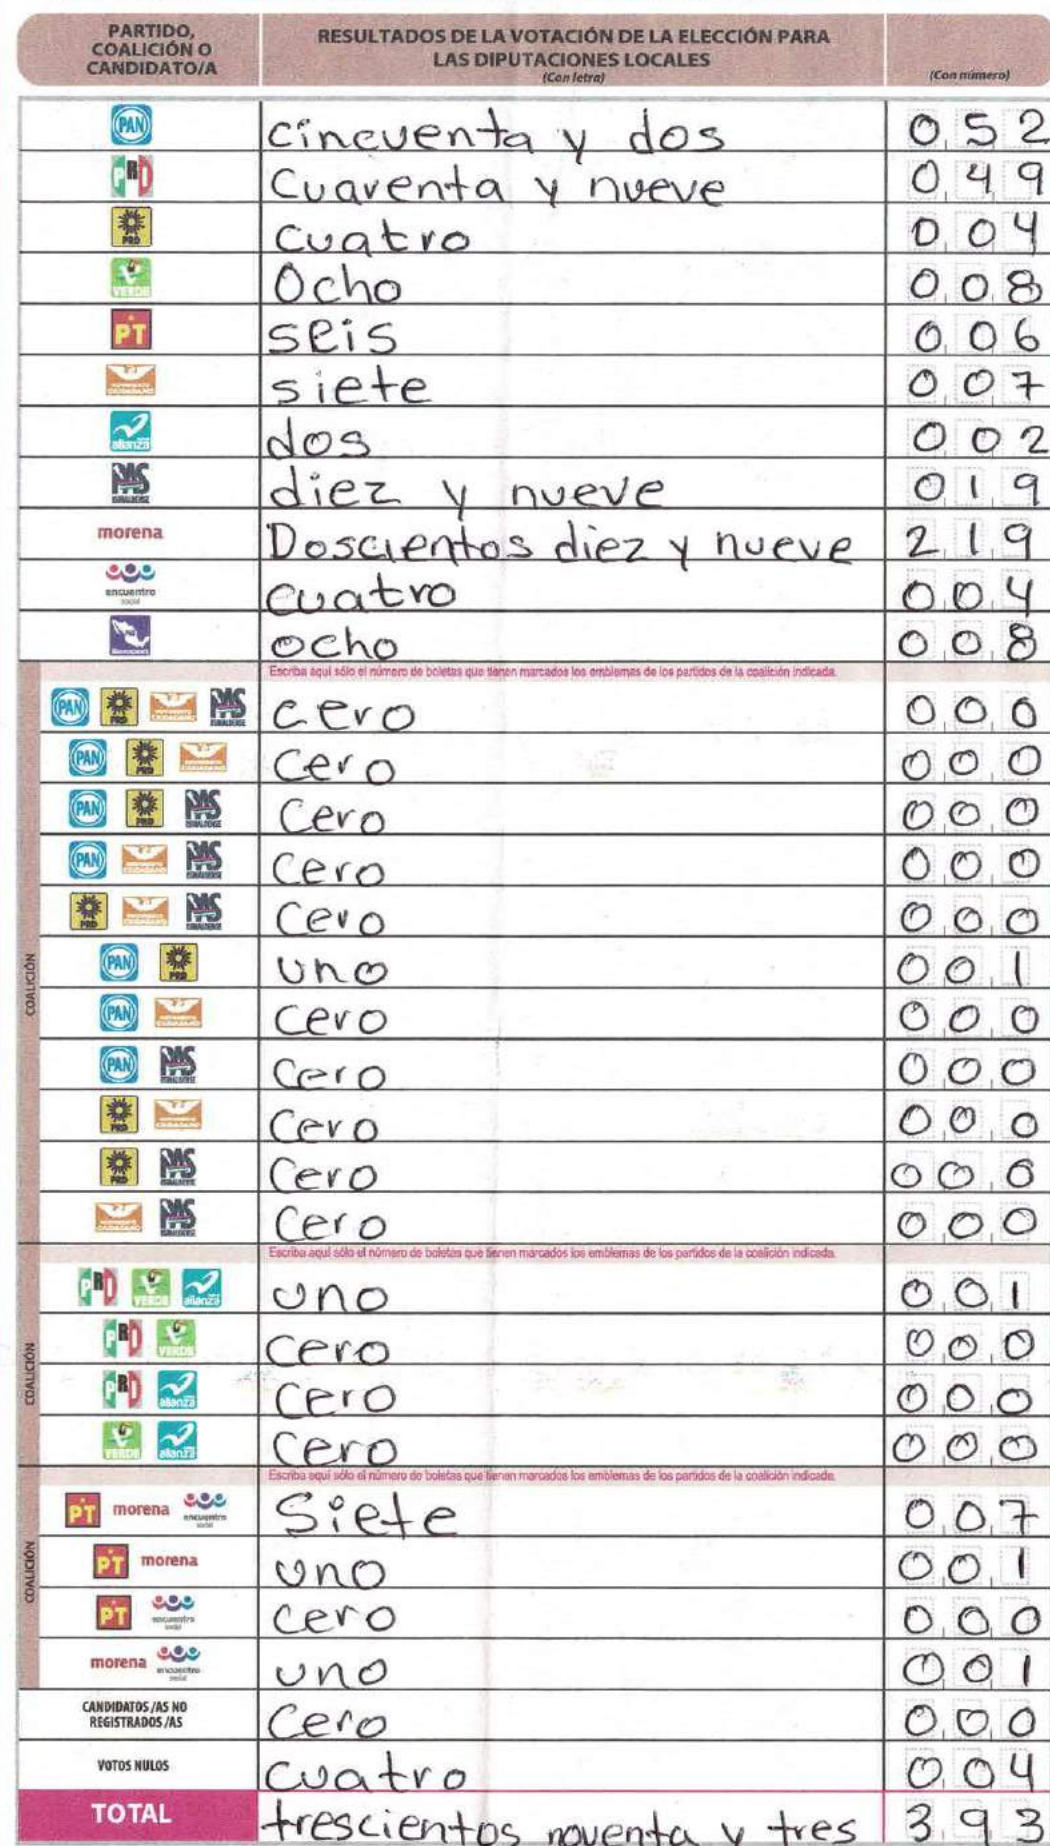 PARTIDO, COALICIÓN O CANDIDATO/A RESULTADOS DE LA VOTACIÓN DE LA ELECCIÓN PARA LAS DIPUTACIONES LOCALES (Con letra) (Con número)
PAN cincuenta y dos 052
PRD Cuarenta y nueve 049
PRD cuatro 004
VERDE Ocho 008
PT seis 006
MOVIMIENTO CIUDADANO siete 007
alianza dos 002
PAS SINALOENSE diez y nueve 019
morena Doscientos diez y nueve 219
encuentro social cuatro 004
ocho 008
Escriba aquí sólo el número de boletas que tienen marcados los emblemas de los partidos de la coalición indicada.
COALICIÓN
PAN PRD MOVIMIENTO CIUDADANO PAS SINALOENSE cero 000
PAN PRD MOVIMIENTO CIUDADANO cero 000
PAN PRD PAS SINALOENSE Cero 000
PAN MOVIMIENTO CIUDADANO PAS SINALOENSE cero 000
PRD MOVIMIENTO CIUDADANO PAS SINALOENSE cero 000
PAN PRD uno 001
PAN MOVIMIENTO CIUDADANO cero 000
PAN PAS SINALOENSE cero 000
PRD MOVIMIENTO CIUDADANO cero 000
PRD PAS SINALOENSE cero 000
MOVIMIENTO CIUDADANO PAS SINALOENSE cero 000
Escriba aquí sólo el número de boletas que tienen marcados los emblemas de los partidos de la coalición indicada.
COALICIÓN
PRD VERDE alianza uno 001
PRD VERDE cero 000
PRD alianza cero 000
VERDE alianza cero 000
Escriba aquí sólo el número de boletas que tienen marcados los emblemas de los partidos de la coalición indicada.
COALICIÓN
PT morena encuentro social Siete 007
PT morena uno 001
PT encuentro social cero 000
morena encuentro social uno 001
CANDIDATOS/AS NO REGISTRADOS/AS Cero 000
VOTOS NULOS cuatro 004
TOTAL trescientos noventa y tres 393